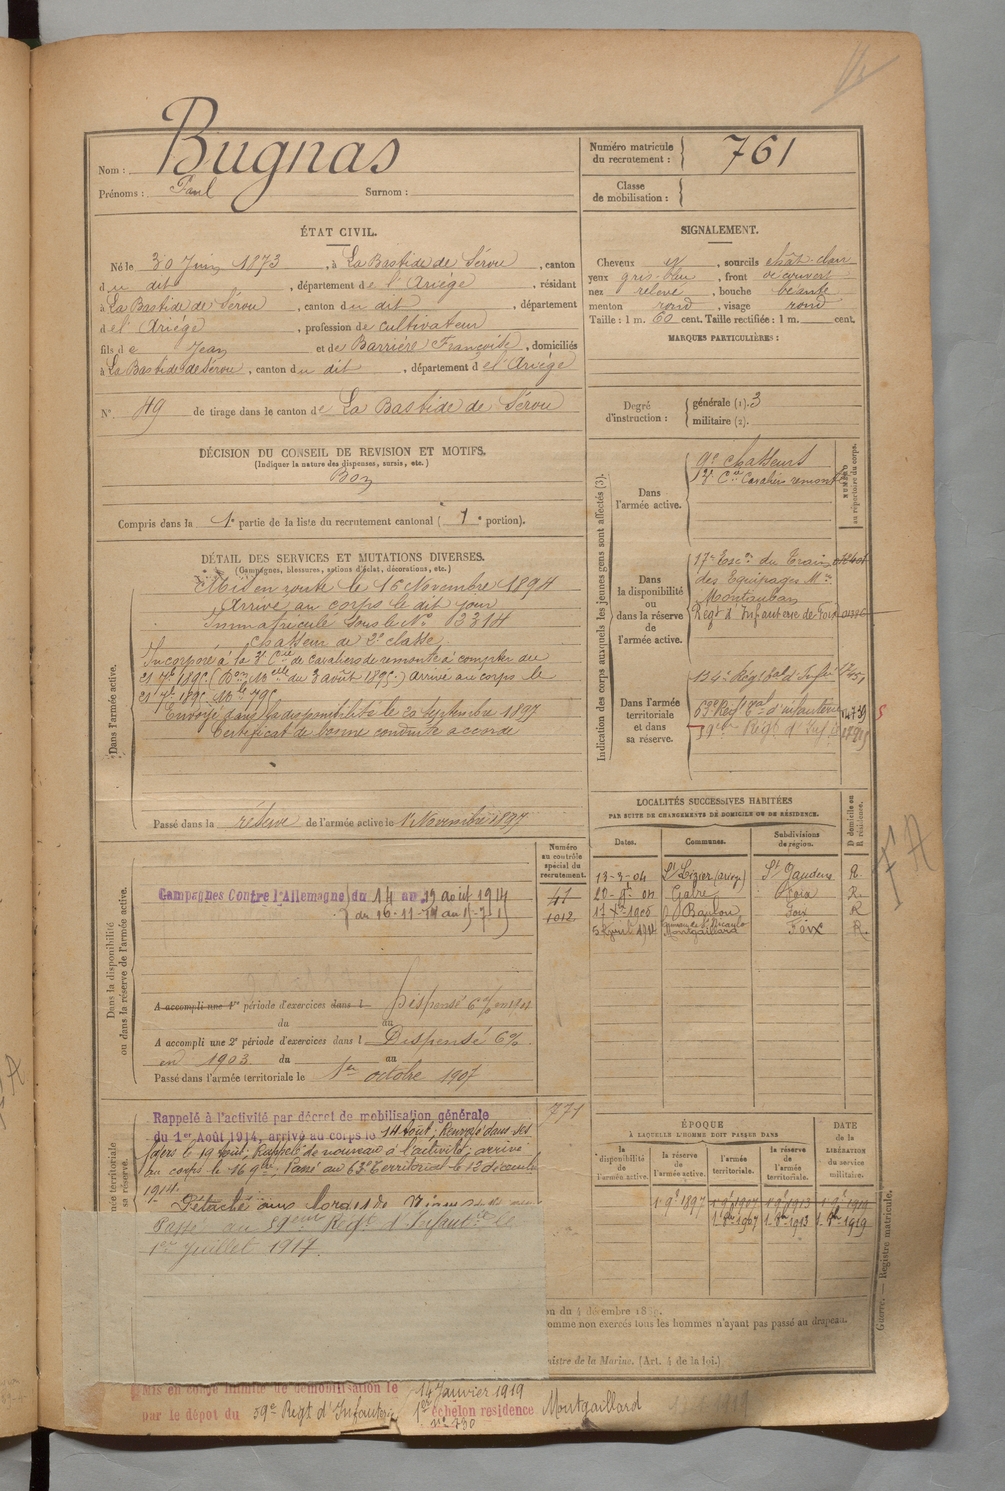 Nom : Bugnas
Prénoms : Paul Surnom :
Numéro matricule du recrutement : 761
Classe de mobilisation :
ÉTAT CIVIL.
Né le 30 Juin 1873, à La Bastide de Sérou, canton
du dit, département de l'Ariège, résidant
à La Bastide de Sérou, canton du dit, département
de l'Ariège, profession de cultivateur
fils de Jean et de Barrière Françoise, domiciliés
à La Bastide de Sérou, canton du dit, département de l'Ariège
N° 49 de tirage dans le canton de La Bastide de Sérou
SIGNALEMENT.
Cheveux et, sourcils chât-clair
yeux gris-bleu, front découvert
nez relevé, bouche béante
menton rond, visage rond
Taille : 1 m. 60 cent. Taille rectifiée : 1 m. cent.
MARQUES PARTICULIÈRES :
Degré d'instruction : générale (1). 3
militaire (2).
DÉCISION DU CONSEIL DE REVISION ET MOTIFS.
(Indiquer la nature des dispenses, sursis, etc.)
Bon
Compris dans la 1e partie de la liste du recrutement cantonal ( 1e portion).
DÉTAIL DES SERVICES ET MUTATIONS DIVERSES.
(Campagnes, blessures, actions d'éclat, décorations, etc.)
Dans l'armée active.
Mis en route le 16 Novembre 1894
Arrivé au corps le dit jour
Immatriculé sous le N° 3314
Chasseur de 2e classe
Incorporé à la 3e Cie de Cavaliers de remonte à compter du
21 7bre 1895 (Don Mlle du 3 août 1895) arrivé au corps le
21 7bre 1895 Mle 795
Envoyé dans la disponibilité le 20 septembre 1897
Certificat de bonne conduite accordé
Passé dans la réserve de l'armée active le 1er Novembre 1897
Indication des corps auxquels les jeunes gens sont affectés (3).
NUMÉRO au répertoire du corps.
Dans l'armée active.
9e chasseurs
Cie Cavaliers remonte
Dans la disponibilité ou dans la réserve de l'armée active.
17e Escon du Train
des Equipages Mres
Montauban
Régt d'Infanterie de Foix
Dans l'armée territoriale et dans sa réserve.
134e Rég tal d'Infie
63e Régt tal d'infanterie
59e Régt d'Infie
LOCALITÉS SUCCESSIVES HABITÉES
PAR SUITE DE CHANGEMENTS DE DOMICILE OU DE RÉSIDENCE.
Dates. Communes. Subdivisions de région. D domicile ou R résidence.
13-3-04 St Lizier (Ariège) St Gaudens R.
Gabre Foix R.
Foix R
Montgaillard Foix R.
Dans la disponibilité ou dans la réserve de l'armée active.
Numéro au contrôle spécial du recrutement.
41
1012
Campagnes Contre l'Allemagne du 14 au 19 août 1914
A accompli une 1re période d'exercices dans l Dispensé 6% en 1901
du au
A accompli une 2e période d'exercices dans l Dispensé 6%
en 1903 du au
Passé dans l'armée territoriale le 1er octobre 1907
771
Rappelé à l'activité par décret de mobilisation générale
du 1er Août 1914, arrivé au corps le 14 août; Renvoyé dans ses
foyers le 19 août; Rappelé de nouveau à l'activité; arrivé
au corps le 16 9bre, Passé au 63e territorial le 13 décembre
1914.
Détaché
Passé au 59eme Régt d'Infantrie le
1er Juillet 1917.
ÉPOQUE
À LAQUELLE L'HOMME DOIT PASSER DANS
la disponibilité de l'armée active. la réserve de l'armée active. l'armée territoriale. la réserve de l'armée territoriale. DATE de la LIBÉRATION du service militaire.
1 9e 1897 1 9e 1907 1 9e 1913 1 9e 1919
1 8e 1907 1 8e 1913 1 8e 1919
on du 4 décembre 18
omme non exercés tous les hommes n'ayant pas passé au drapeau.
nistre de la Marine. (Art. 4 de la loi.)
Guerre. — Registre matricule.
FA
Mis en congé illimité de démobilisation le 14 Janvier 1919
par le dépôt du 59e Régt d'Infanterie 1er échelon residence Montgaillard
n° 430